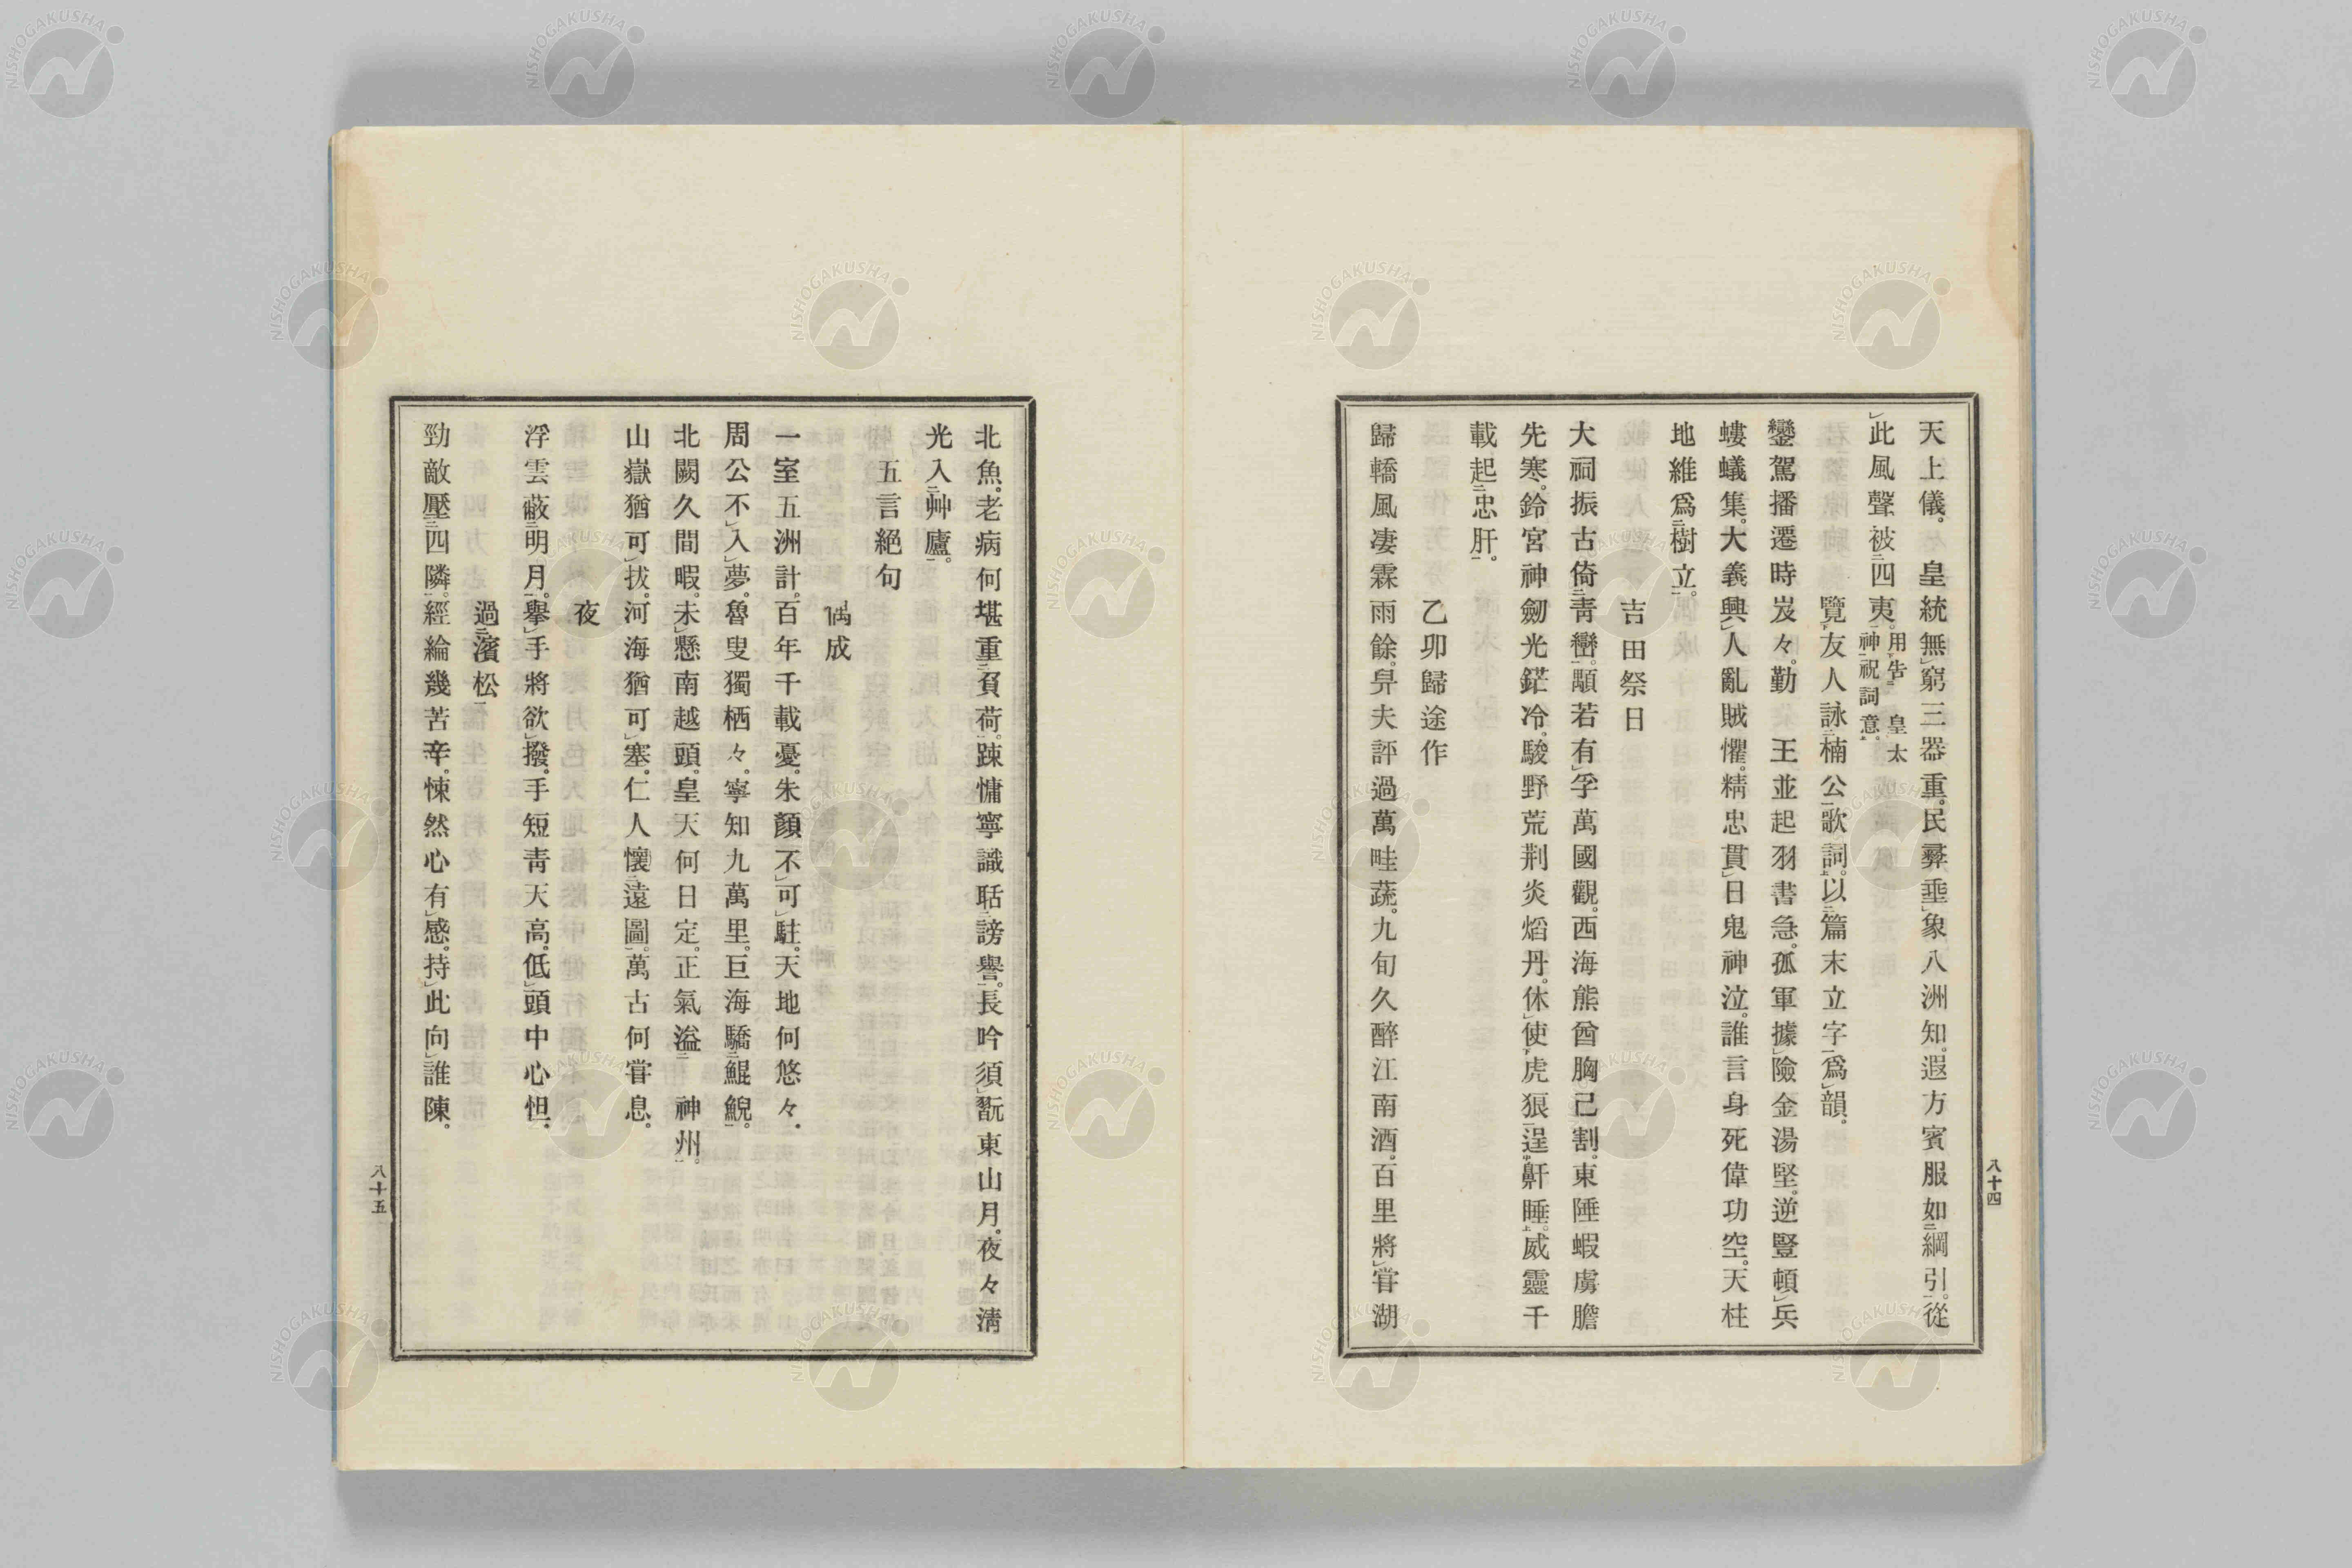 天上儀。皇統無窮三器重。民彝垂象八洲知。遐方賓服如綱引。從
此風聲被四夷。用告 皇太
神祝詞意。
覽友人詠楠公歌詞。以篇末立字爲韻。
鑾駕播遷時岌々。勤王並起羽書急。孤軍據險金湯堅。逆豎頓兵
螻蟻集。大義興人亂賊懼。精忠貫日鬼神泣。誰言身死偉功空。天柱
地維爲樹立。
吉田祭日
大祠振古倚靑巒。顒若有孚萬國觀。西海熊酋胸已割。東陲蝦虜膽
先寒。鈴宮神劒光鋩冷。駿野荒荆炎熖丹。休使虎狼逞鼾睡。威靈千
載起忠肝。
乙卯歸途作
歸轎風凄霖雨餘。舁夫評過萬畦蔬。九旬久醉江南酒。百里將甞湖
八十四
北魚。老病何堪重負荷。踈慵寧識聒謗譽。長吟須翫東山月。夜々淸
光入艸廬。
五言絕句
偶成
一室五洲計。百年千載憂。朱顏不可駐。天地何悠々。
周公不入夢。魯叟獨栖々。寧知九萬里。巨海驕鯤鯢。
北闕久間暇。未懸南越頭。皇天何日定。正氣溢神州。
山嶽猶可拔。河海猶可塞。仁人懷遠圖。萬古何甞息。
夜
浮雲蔽明月。擧手將欲撥。手短靑天高。低頭中心怛。
過濱松
勁敵壓四隣。經綸幾苦辛。悚然心有感。持此向誰陳。
八十五
NISHOGAKUSHA